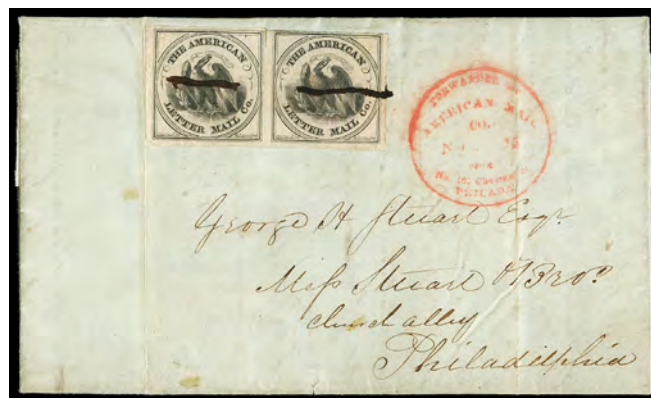 THE AMERICAN
LETTER MAIL Co.
THE AMERICAN
LETTER MAIL Co.
FORWARDED BY
AMERICAN MAIL
CO.
PHILADA
George H Stuart Esqr.
Stuart & Bro?
church alley
Philadelphia